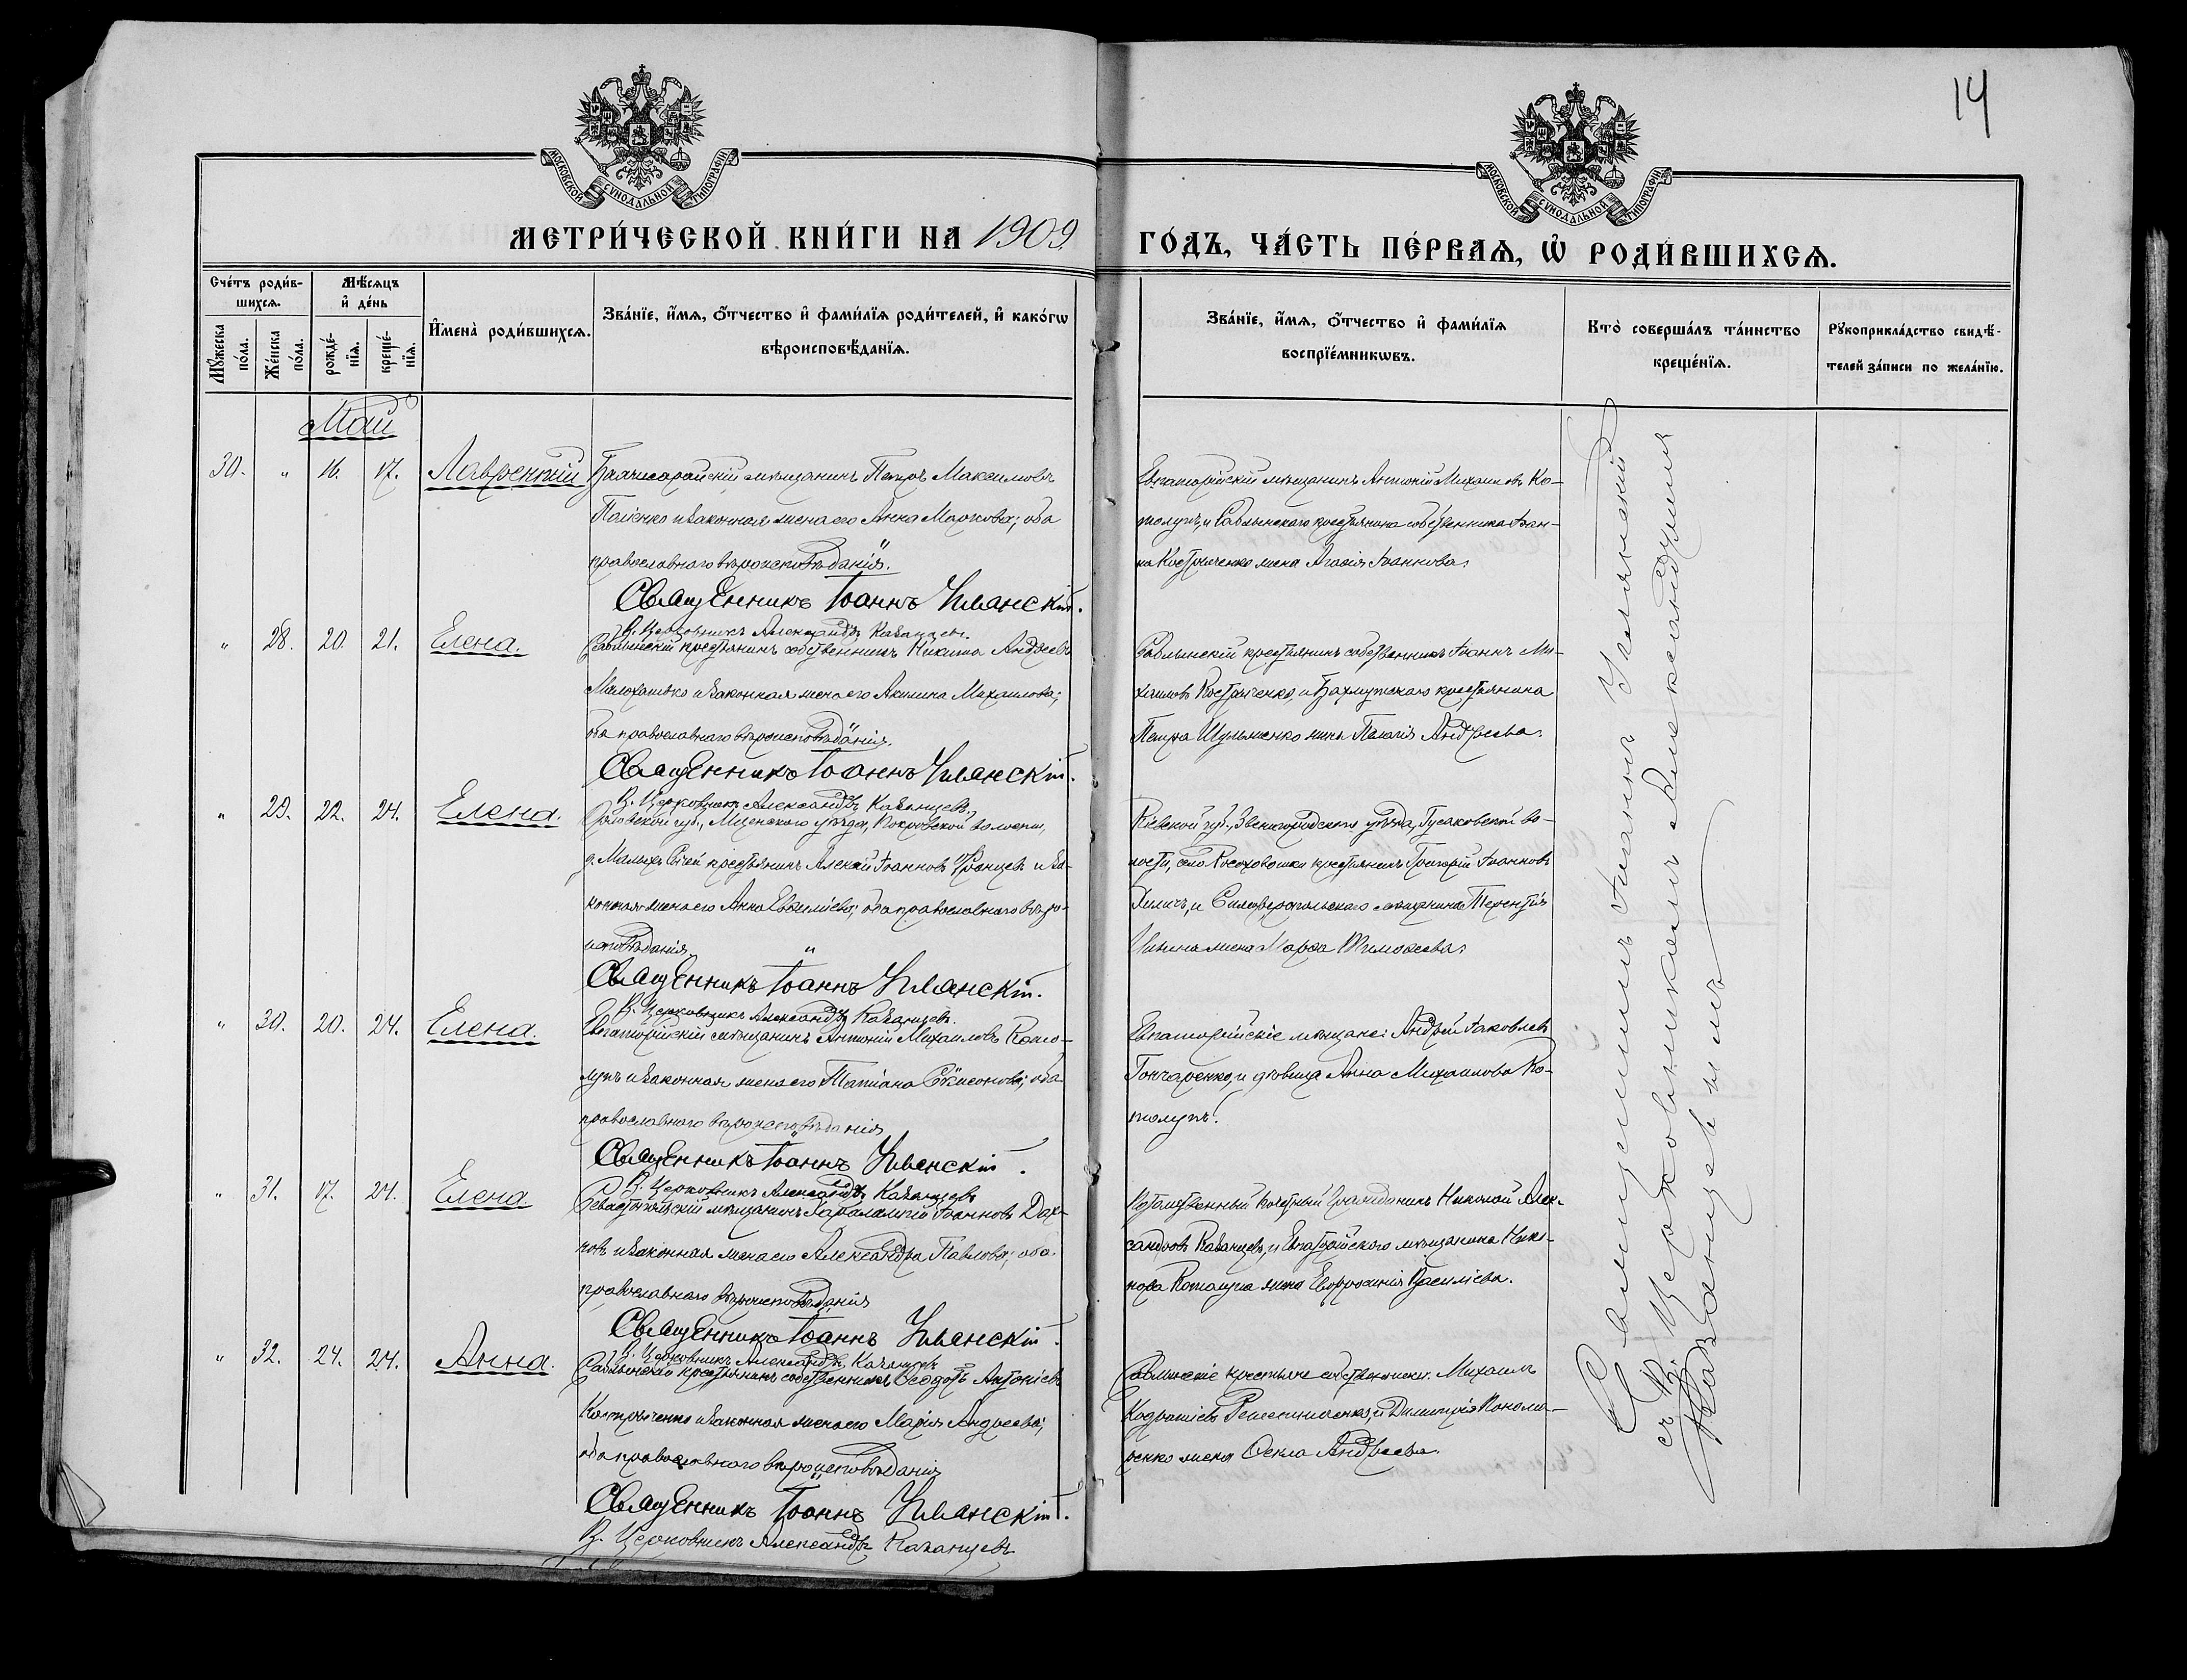 14
МОСКОВСКОЙ СѴНОДАЛЬНОЙ ТИПОГРАФІИ
МОСКОВСКОЙ СѴНОДАЛЬНОЙ ТИПОГРАФІИ
МЕТРИ́ЧЕСКОЙ КНИ́ГИ НА 1909
ГО́ДЪ, ЧА́СТЬ ПЕ́РВАѦ, Ѡ҆ РОДИ́ВШИХСѦ.
Сче́тъ роди́в-
шихсѧ.
Мꙋ́жеска
по́ла.
Же́нска
по́ла.
Мѣ́сѧцъ
и҆ де́нь
рожде́-
нїѧ.
креще́-
нїѧ.
И҆мена̀ роди́вшихсѧ.
Зва́нїе, и҆́мѧ, ѻ҆́тчество и҆ фами́лїѧ роди́телей, и҆ како́гѡ
вѣроисповѣ́данїѧ.
Зва́нїе, и҆́мѧ, ѻ҆́тчество и҆ фами́лїѧ
воспрїе́мникѡвъ.
Кто̀ соверша́лъ та́инство
креще́нїѧ.
Рꙋкоприкла́дство свидѣ́-
телей за́писи по жела́нїю.
Май
30. „ 16. 17. Лаврентій
мѣщанинъ Петръ Максимовъ
и законная жена его Анна Маркова; оба
православнаго вѣроисповѣданія.
Священникъ Іоаннъ Уманскій.
В. Церковникъ Александръ Казанцевъ.
Евпаторійскій мѣщанинъ Антоній Михаиловъ Ко-
толупъ, и Саблынскаго крестьянина собственника Іоан-
на Костриченко жена Агаѳія Іоаннова.
„ 28. 20. 21. Елена.
Саблынскій крестьянинъ собственникъ Никита Андреевъ
и законная жена его Акилина Михаилова;
оба православнаго вѣроисповѣданія.
Священникъ Іоаннъ Уманскій.
В. Церковникъ Александръ Казанцевъ.
Саблынскій крестьянинъ собственникъ Іоаннъ Ми-
хаиловъ Костриченко, и Бахмутскаго крестьянина
Петра Шульженко жена Пелагія Андреева.
„ 29. 22. 24. Елена.
Орловской губ., Мценскаго уѣзда, Покровской волости,
д. Малыхъ крестьянинъ Алексій Іоанновъ и за-
конная жена его Анна православнаго вѣро-
исповѣданія.
Священникъ Іоаннъ Уманскій.
В. Церковникъ Александръ Казанцевъ.
Кіевской губ., Звенигородскаго уѣзда, Гусаковской во-
лости, село крестьянинъ Григорій Іоанновъ
и Симферопольскаго мѣщанина Терентія
жена Марѳа Тимоѳеева.
„ 30. 20. 24. Елена.
Евпаторійскій мѣщанинъ Антоній Михаиловъ Кото-
лупъ и законная жена его Татіана оба
православнаго вѣроисповѣданія
Священникъ Іоаннъ Уманскій.
В. Церковникъ Александръ Казанцевъ.
Евпаторійскіе мѣщане: Андрей Іаковлевъ
Гончаренко, и дѣвица Анна Михаилова Ко-
толупъ.
„ 31. 17. 24. Елена.
Севастопольскій мѣщанинъ Харалампій Іоанновъ
и законная жена его Александра Павлова; оба
православнаго вѣроисповѣданія
Священникъ Іоаннъ Уманскій.
В. Церковникъ Александръ Казанцевъ
Потомственный почетный гражданинъ Николай Алек-
сандровъ Казанцевъ, и Евпаторійскаго мѣщанина Ника-
нора жена Евфросинія Василіева.
„ 32. 24. 24. Анна.
Саблынскій крестьянинъ собственникъ Ѳеодотъ Антоніевъ
Костриченко и законная жена его Марія Андреева;
оба православнаго вѣроисповѣданія
Священникъ Іоаннъ Уманскій.
В. Церковникъ Александръ Казанцевъ
Саблынскіе крестьяне собственники: Михаилъ
и Димитрія Понома-
ренко жена Ѳекла Андреева.
Священникъ Іоаннъ Уманскій
съ В. Церковникомъ Александромъ
Казанцевымъ